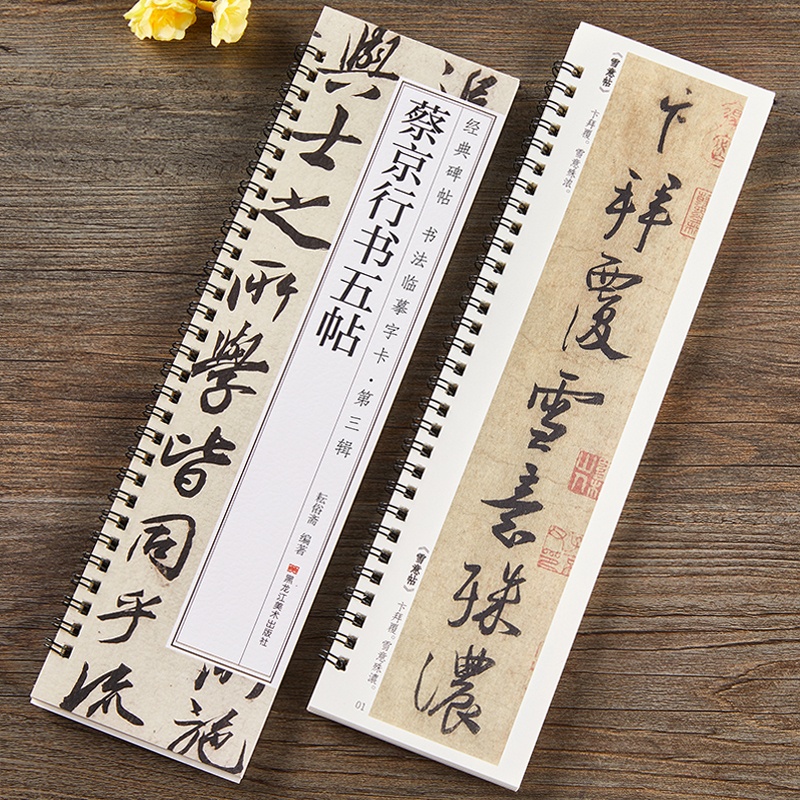 與士之所學皆同乎流
施
经典碑帖 书法临摹字卡·第三辑
蔡京行书五帖
耘俗斋 编著
黑龙江美术出版社
《雪意帖》
卞拜覆。雪意殊浓。
卞拜覆雪意殊濃
《雪意帖》
卞拜覆。雪意殊濃。
01